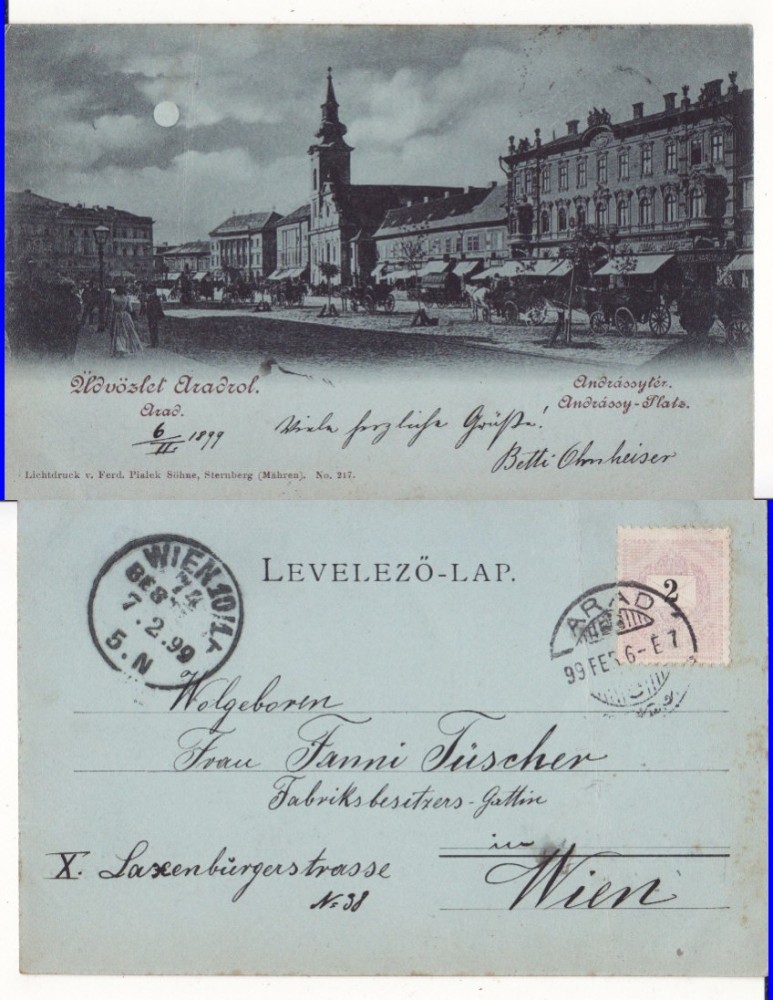 Üdvözlet Aradrol.
Arad.
6/II. 1899
Andrássytér.
Andrássy-Platz.
Viele herzliche Grüße!
Betti Ohnheiser
Lichtdruck v. Ferd. Pialek Söhne, Sternberg (Mähren). No. 217.
LEVELEZŐ-LAP.
WIEN 10/1
74
BEST
7.2.99
5.N
2
ARAD
99 FEB 6-E7
Wolgeboren
Frau Fanni Tüscher
Fabriksbesitzers-Gattin
in
X. Laxenbürgerstrasse
Wien
No 38